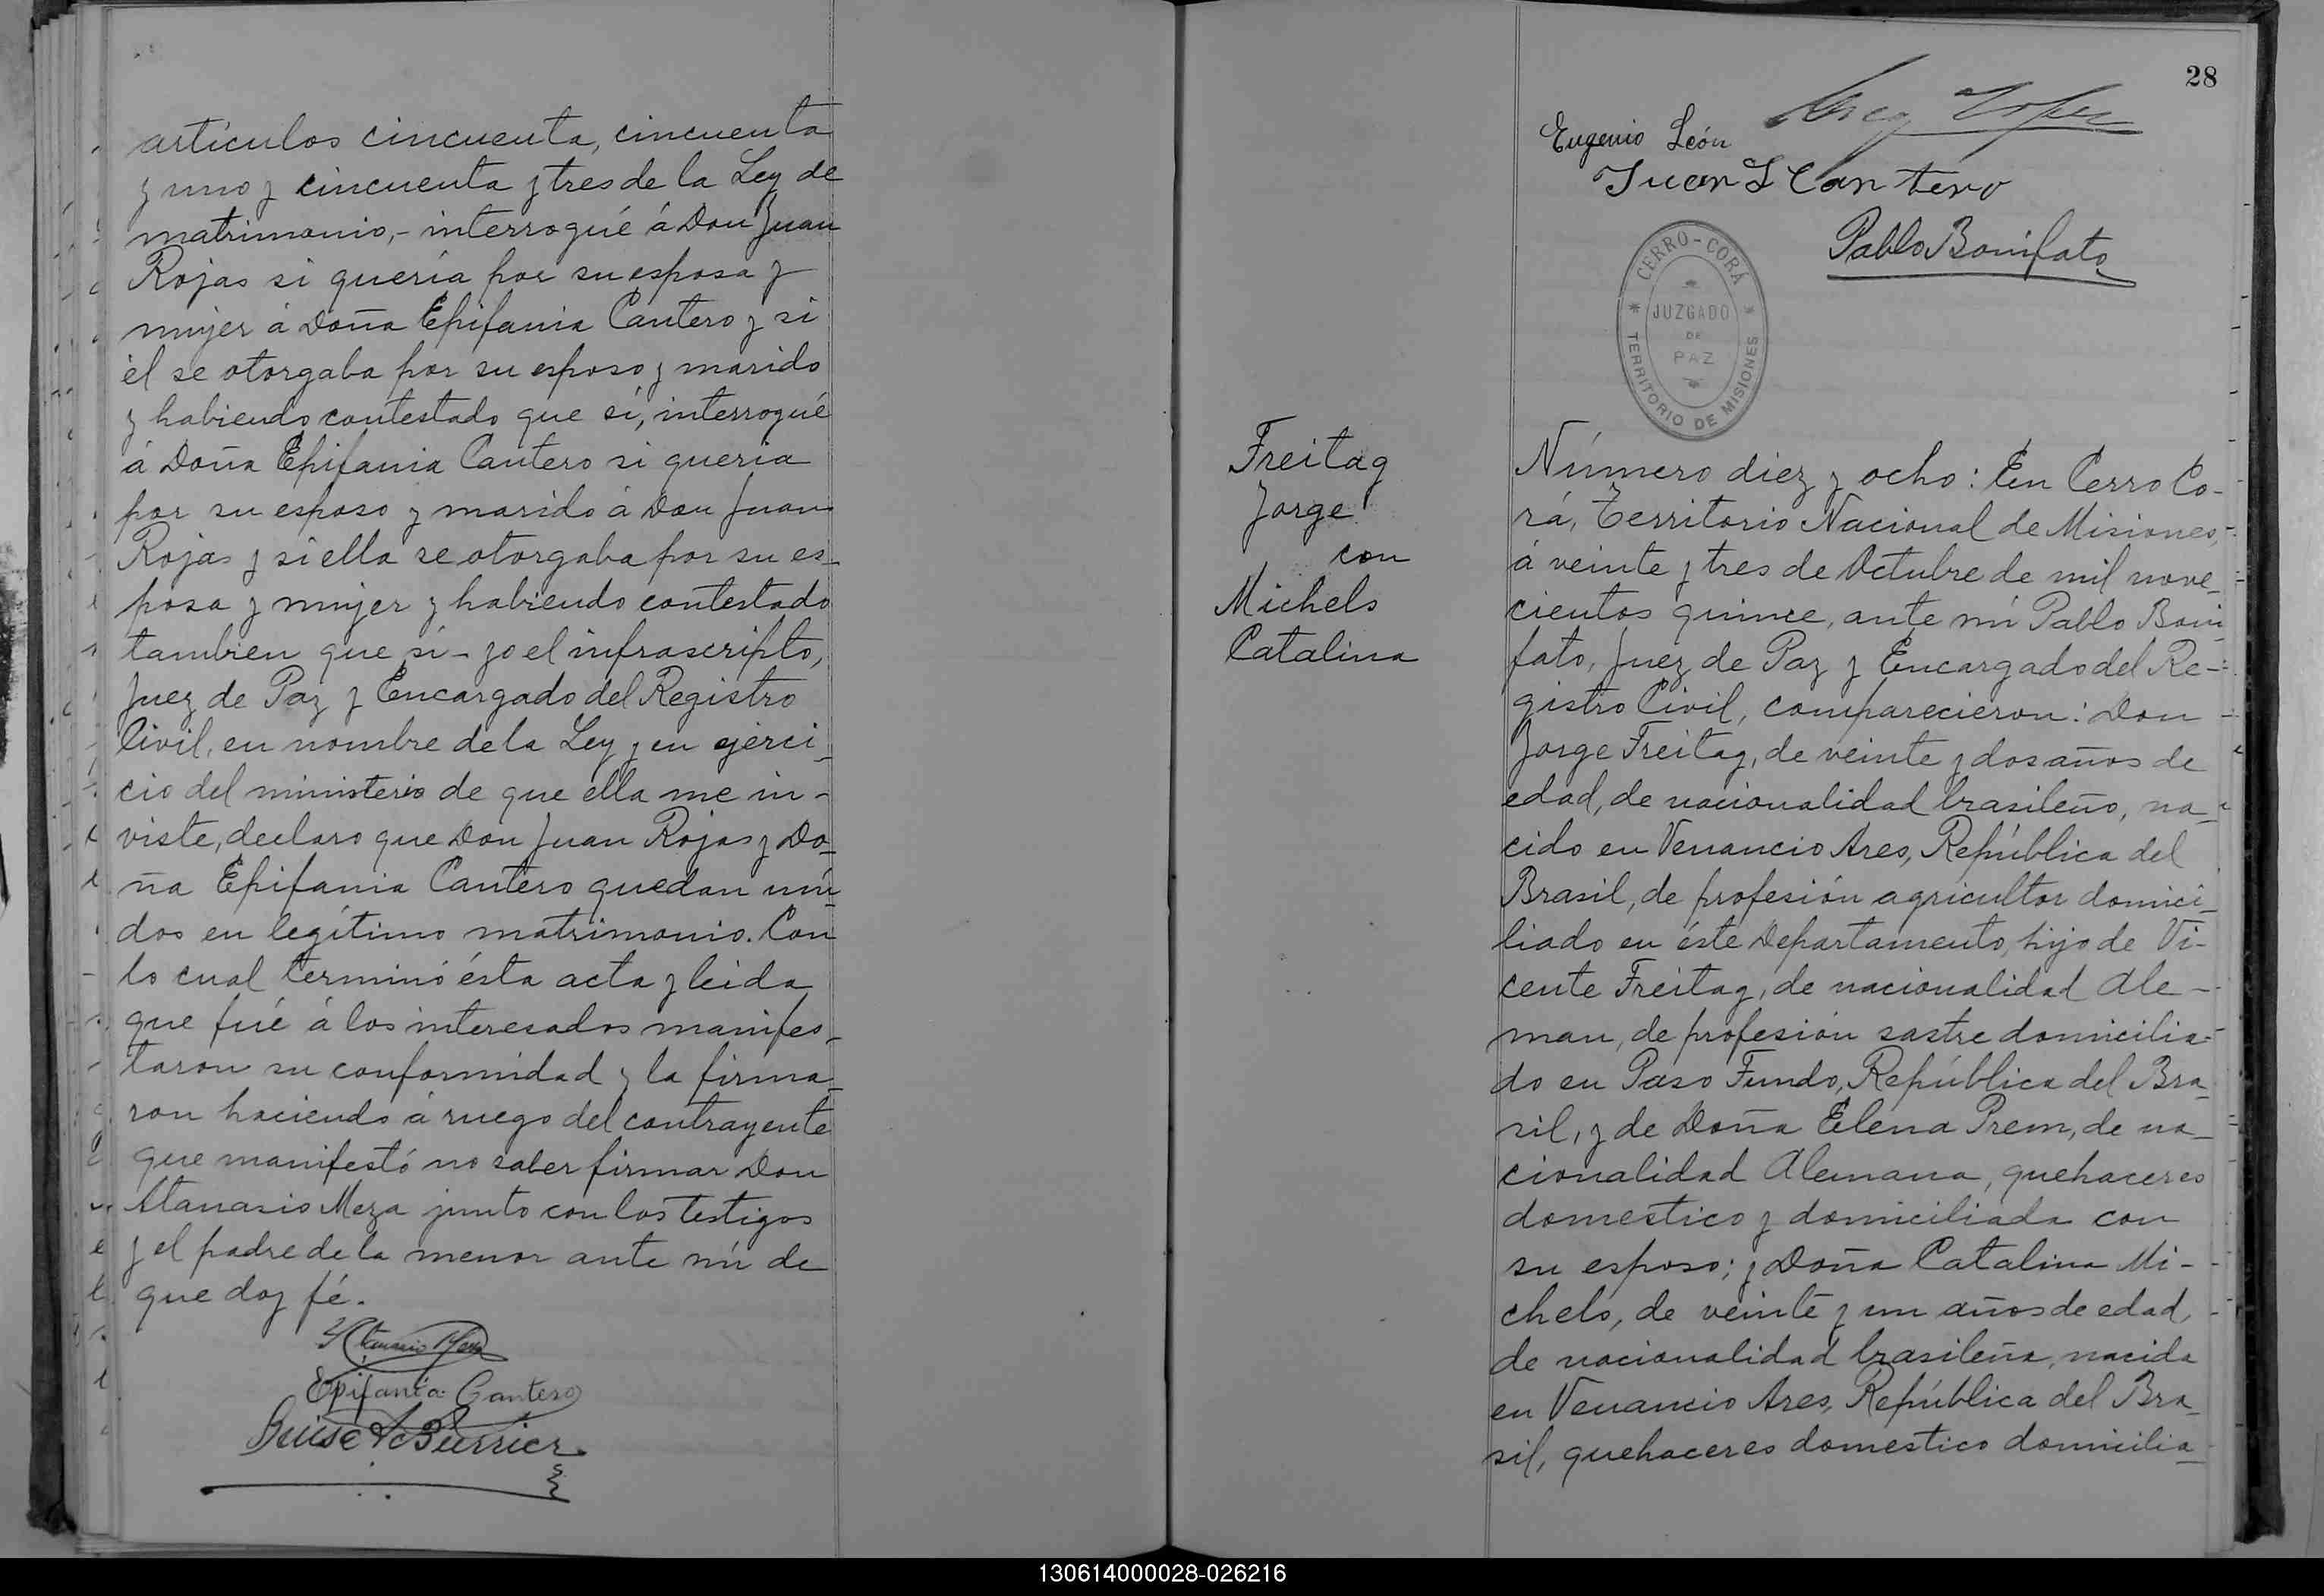 artículos cincuenta, cincuenta
y uno y cincuenta y tres de la Ley de
matrimonio,- interrogué á Don Juan
Rojas si quería por su esposa y
mujer á Doña Epifania Cantero y si
él se otorgaba por su esposo y marido
y habiendo contestado que sí, interrogué
á Doña Epifania Cantero si queria
por su esposo y marido á Don Juan
Rojas y si ella se otorgaba por su es-
posa y mujer y habiendo contestado
tambien que sí - yo el infrascripto,
Juez de Paz y Encargado del Registro
Civil, en nombre de la Ley y en ejerci-
cio del ministerio de que ella me in-
viste, declaro que Don Juan Rojas y Do-
ña Epifania Cantero quedan uni-
dos en legítimo matrimonio. Con
lo cual terminó ésta acta y leida
que fué á los interesados manifes-
taron su conformidad y la firma-
ron haciendo á ruego del contrayente
que manifestó no saber firmar Don
Atanasio Meza junto con los testigos
y el padre de la menor ante mí de
que doy fé.
Atanasio Meza
Epifania Cantero
28
Eugenio León
Juan L Cantero
Pablo Bonifato
CERRO-CORÁ
JUZGADO
DE
PAZ
TERRITORIO DE MISIONES
Freitag
Jorge
con
Michels
Catalina
Número diez y ocho: En Cerro Co-
rá, Territorio Nacional de Misiones,
á veinte y tres de Octubre de mil nove-
cientos quince, ante mí Pablo Boni-
fato, Juez de Paz y Encargado del Re-
gistro Civil, comparecieron: Don
Jorge Freitag, de veinte y dos años de
edad, de nacionalidad brasileño, na-
cido en Venancio Ares, República del
Brasil, de profesión agricultor domici-
liado en éste Departamento, hijo de Vi-
cente Freitag, de nacionalidad Ale-
man, de profesión sastre domicilia-
do en Paso Fundo, República del Bra-
sil, y de Doña Elena Prem, de na-
cionalidad Alemana, quehaceres
domestico y domiciliada con
su esposo; y Doña Catalina Mi-
chels, de veinte y un años de edad,
de nacionalidad brasileña, nacida
en Venancio Ares, República del Bra-
sil, quehaceres domestico domicilia-
130614000028-026216